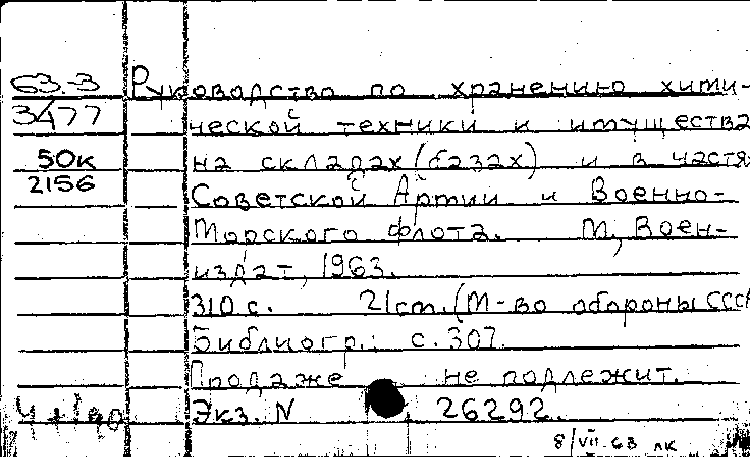 63.-3 Руководство по хранению хими-
3477 ческой техники и имущества
50к на складах (базах) и в частях
2156 Советской Армии и Военно-
Морского флота. М., Воен-
издат, 1963.
310 с. 21 cm. (М-во обороны СССР
Библиогр.: с. 307.
Продаже не подлежит.
Экз. N 26292.
8/VII-63 лк